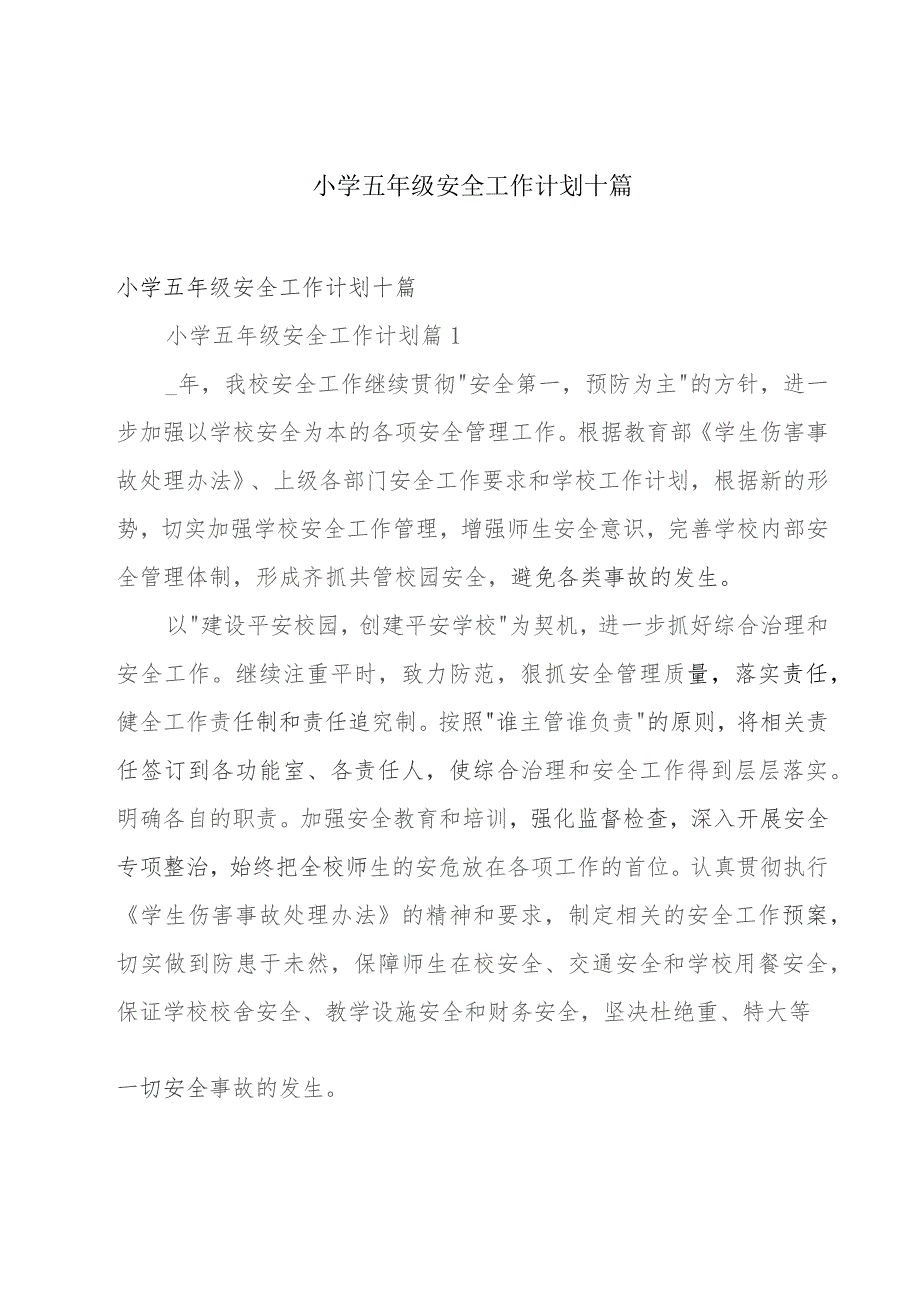 小学五年级安全工作计划十篇
小学五年级安全工作计划十篇
小学五年级安全工作计划篇1
_年，我校安全工作继续贯彻"安全第一，预防为主"的方针，进一
步加强以学校安全为本的各项安全管理工作。根据教育部《学生伤害事
故处理办法》、上级各部门安全工作要求和学校工作计划，根据新的形
势，切实加强学校安全工作管理，增强师生安全意识，完善学校内部安
全管理体制，形成齐抓共管校园安全，避免各类事故的发生。
以"建设平安校园，创建平安学校"为契机，进一步抓好综合治理和
安全工作。继续注重平时，致力防范，狠抓安全管理质量，落实责任，
健全工作责任制和责任追究制。按照"谁主管谁负责"的原则，将相关责
任签订到各功能室、各责任人，使综合治理和安全工作得到层层落实。
明确各自的职责。加强安全教育和培训，强化监督检查，深入开展安全
专项整治，始终把全校师生的安危放在各项工作的首位。认真贯彻执行
《学生伤害事故处理办法》的精神和要求，制定相关的安全工作预案，
切实做到防患于未然，保障师生在校安全、交通安全和学校用餐安全，
保证学校校舍安全、教学设施安全和财务安全，坚决杜绝重、特大等
一切安全事故的发生。